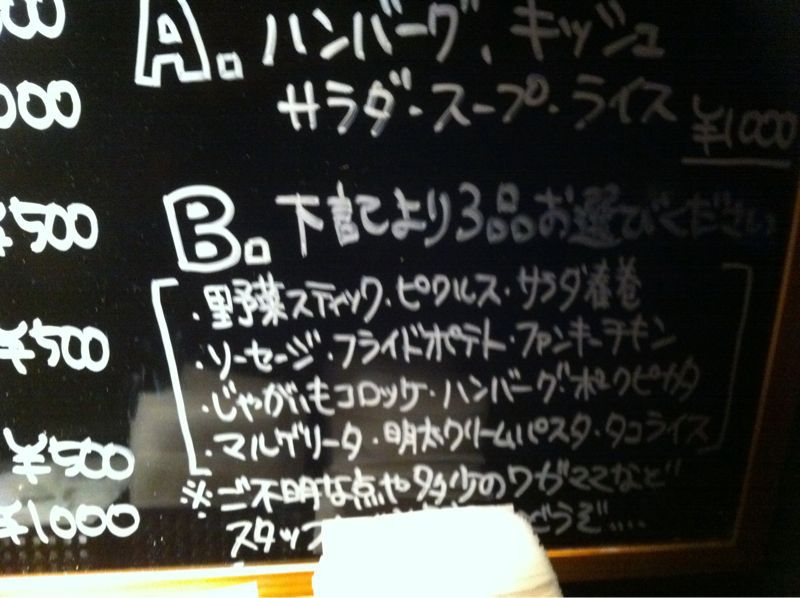 00
A. ハンバーグ、キッシュ
000
サラダ・スープ・ライス
¥1000
¥500
B. 下記より3品お選びください
・野菜スティック・ピクルス・サラダ春巻
¥500
・ソーセージ・フライドポテト・ファンキーチキン
・じゃがいもコロッケ・ハンバーグ・ポークピカタ
・マルゲリータ・明太クリームパスタ・タコライス
¥500
※ご不明な点や多少のワガママなど
¥1000
スタッフ どうぞ....